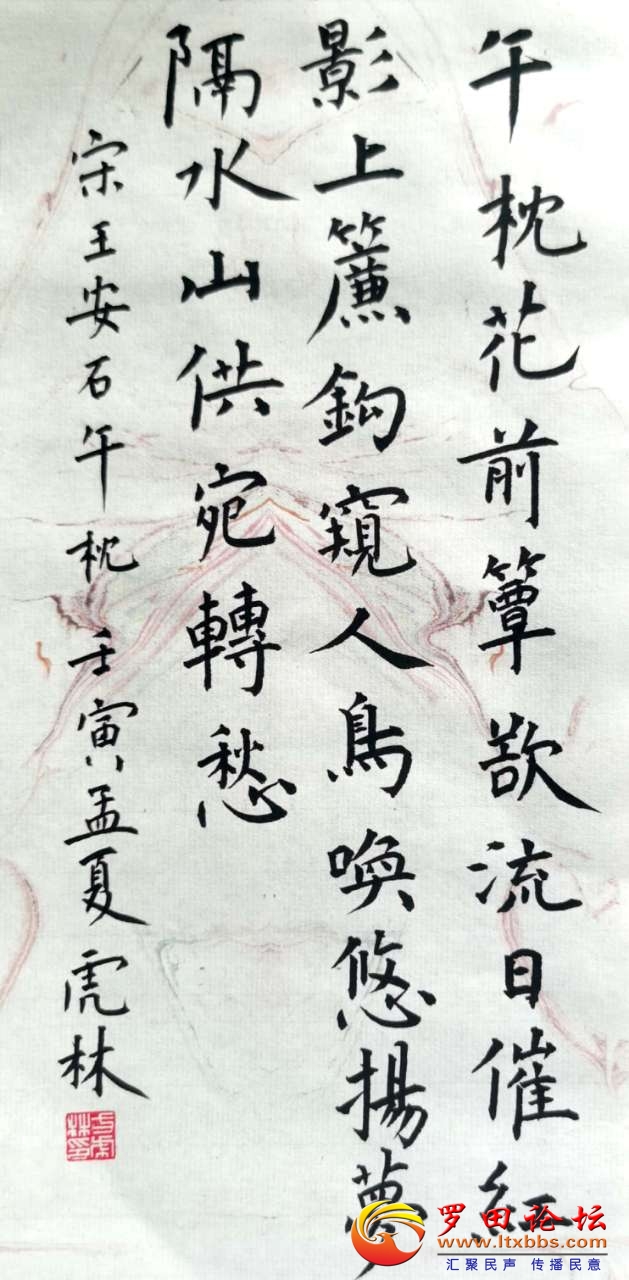 午枕花前簟欲流日催紅
影上簾鉤窺人鳥喚悠揚夢
隔水山供宛轉愁
宋王安石午枕壬寅孟夏虎林
罗田论坛
www.ltxbbs.com
汇聚民声 传播民意